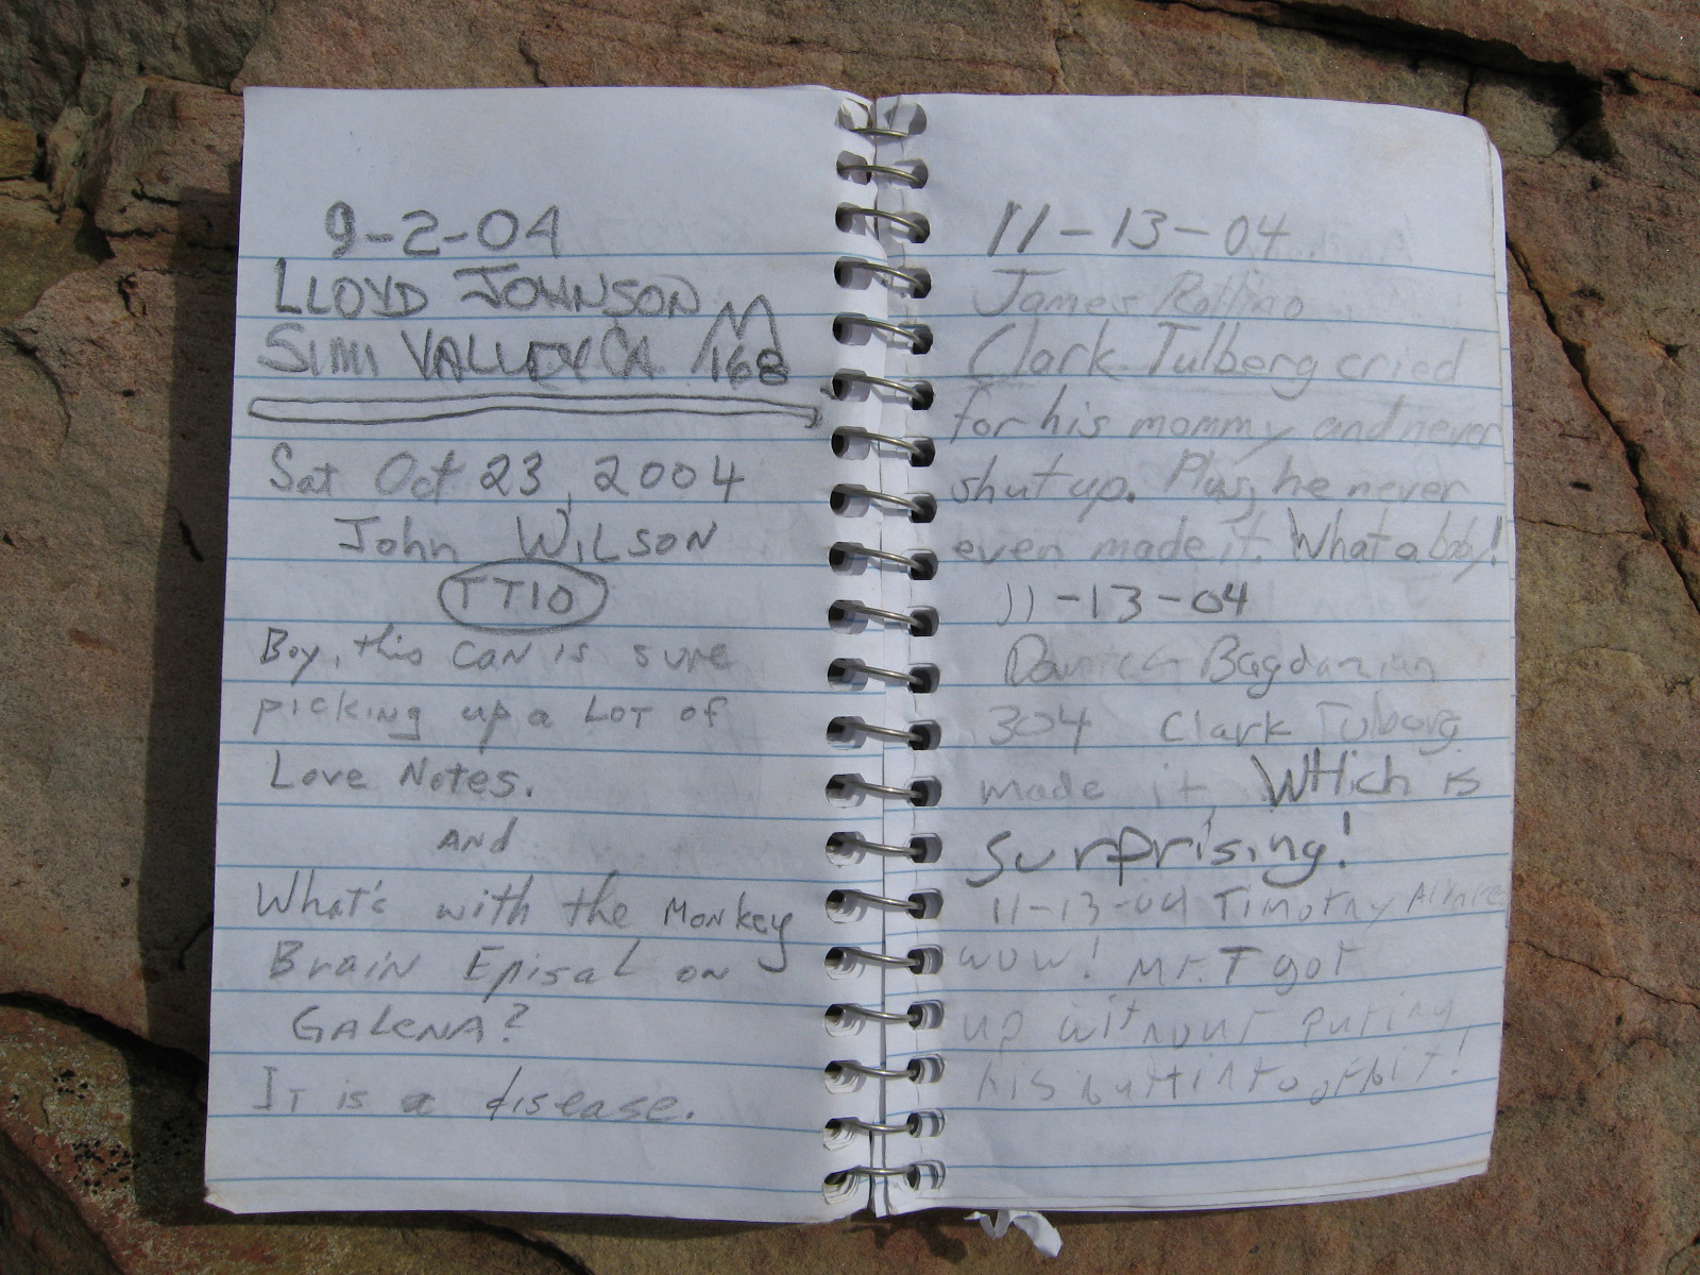 9-2-04
LLOYD JOHNSON
SIMI VALLEY CA M168
Sat Oct 23, 2004
John WILSON
TT10
Boy, this CAN is sure
picking up a LOT of
Love Notes.
AND
What's with the Monkey
Brain Episal on
GALENA?
IT is a disease.
11-13-04
James
Clark Tulberg cried
for his mommy and never
shut up. Plus, he never
even made it. What a baby!
11-13-04
Bagdazian
304 Clark Tulberg
made it, WHich is
surprising!
11-13-04 Timothy
wow! Mr. T got
up without puting
his butt into orbit!